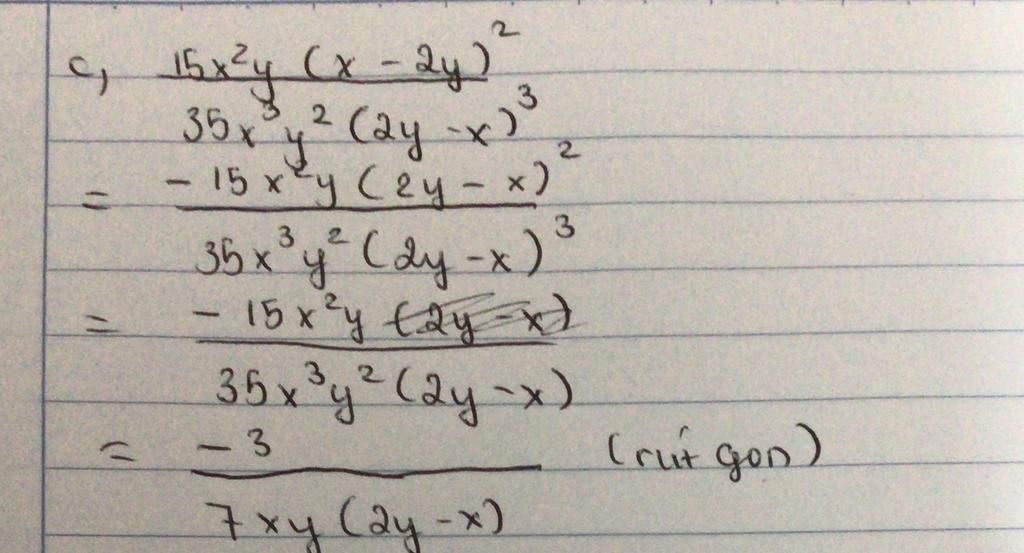 c, 15x²y (x - 2y)²
35x³y² (2y - x)³
= - 15x²y (2y - x)²
35x³y² (2y - x)³
= - 15x²y (2y - x)
35x³y² (2y - x)
= - 3 (rút gọn)
7xy (2y - x)